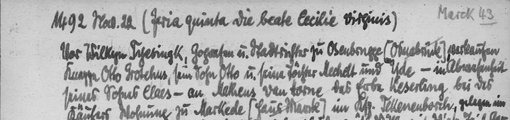 1492 Nov. 22 (feria quinta die beate Cecilie virginis)
Marck 43
Vor Wilhem Tysebingk, Gografen u. Stadtrichter zu Osenbrugge (Osnabrück) verkaufen
Knappe Otto, sein Sohn Otto u. seine Tochter Mechelt und Yde – in Abwesenheit
seines Sohnes Claes – an Mathens van Horne das Erbe Keserling bei des
Käufers Wohnung zu Markede (Haus Marck) im Ksp. Teckenenborch, gelegen im